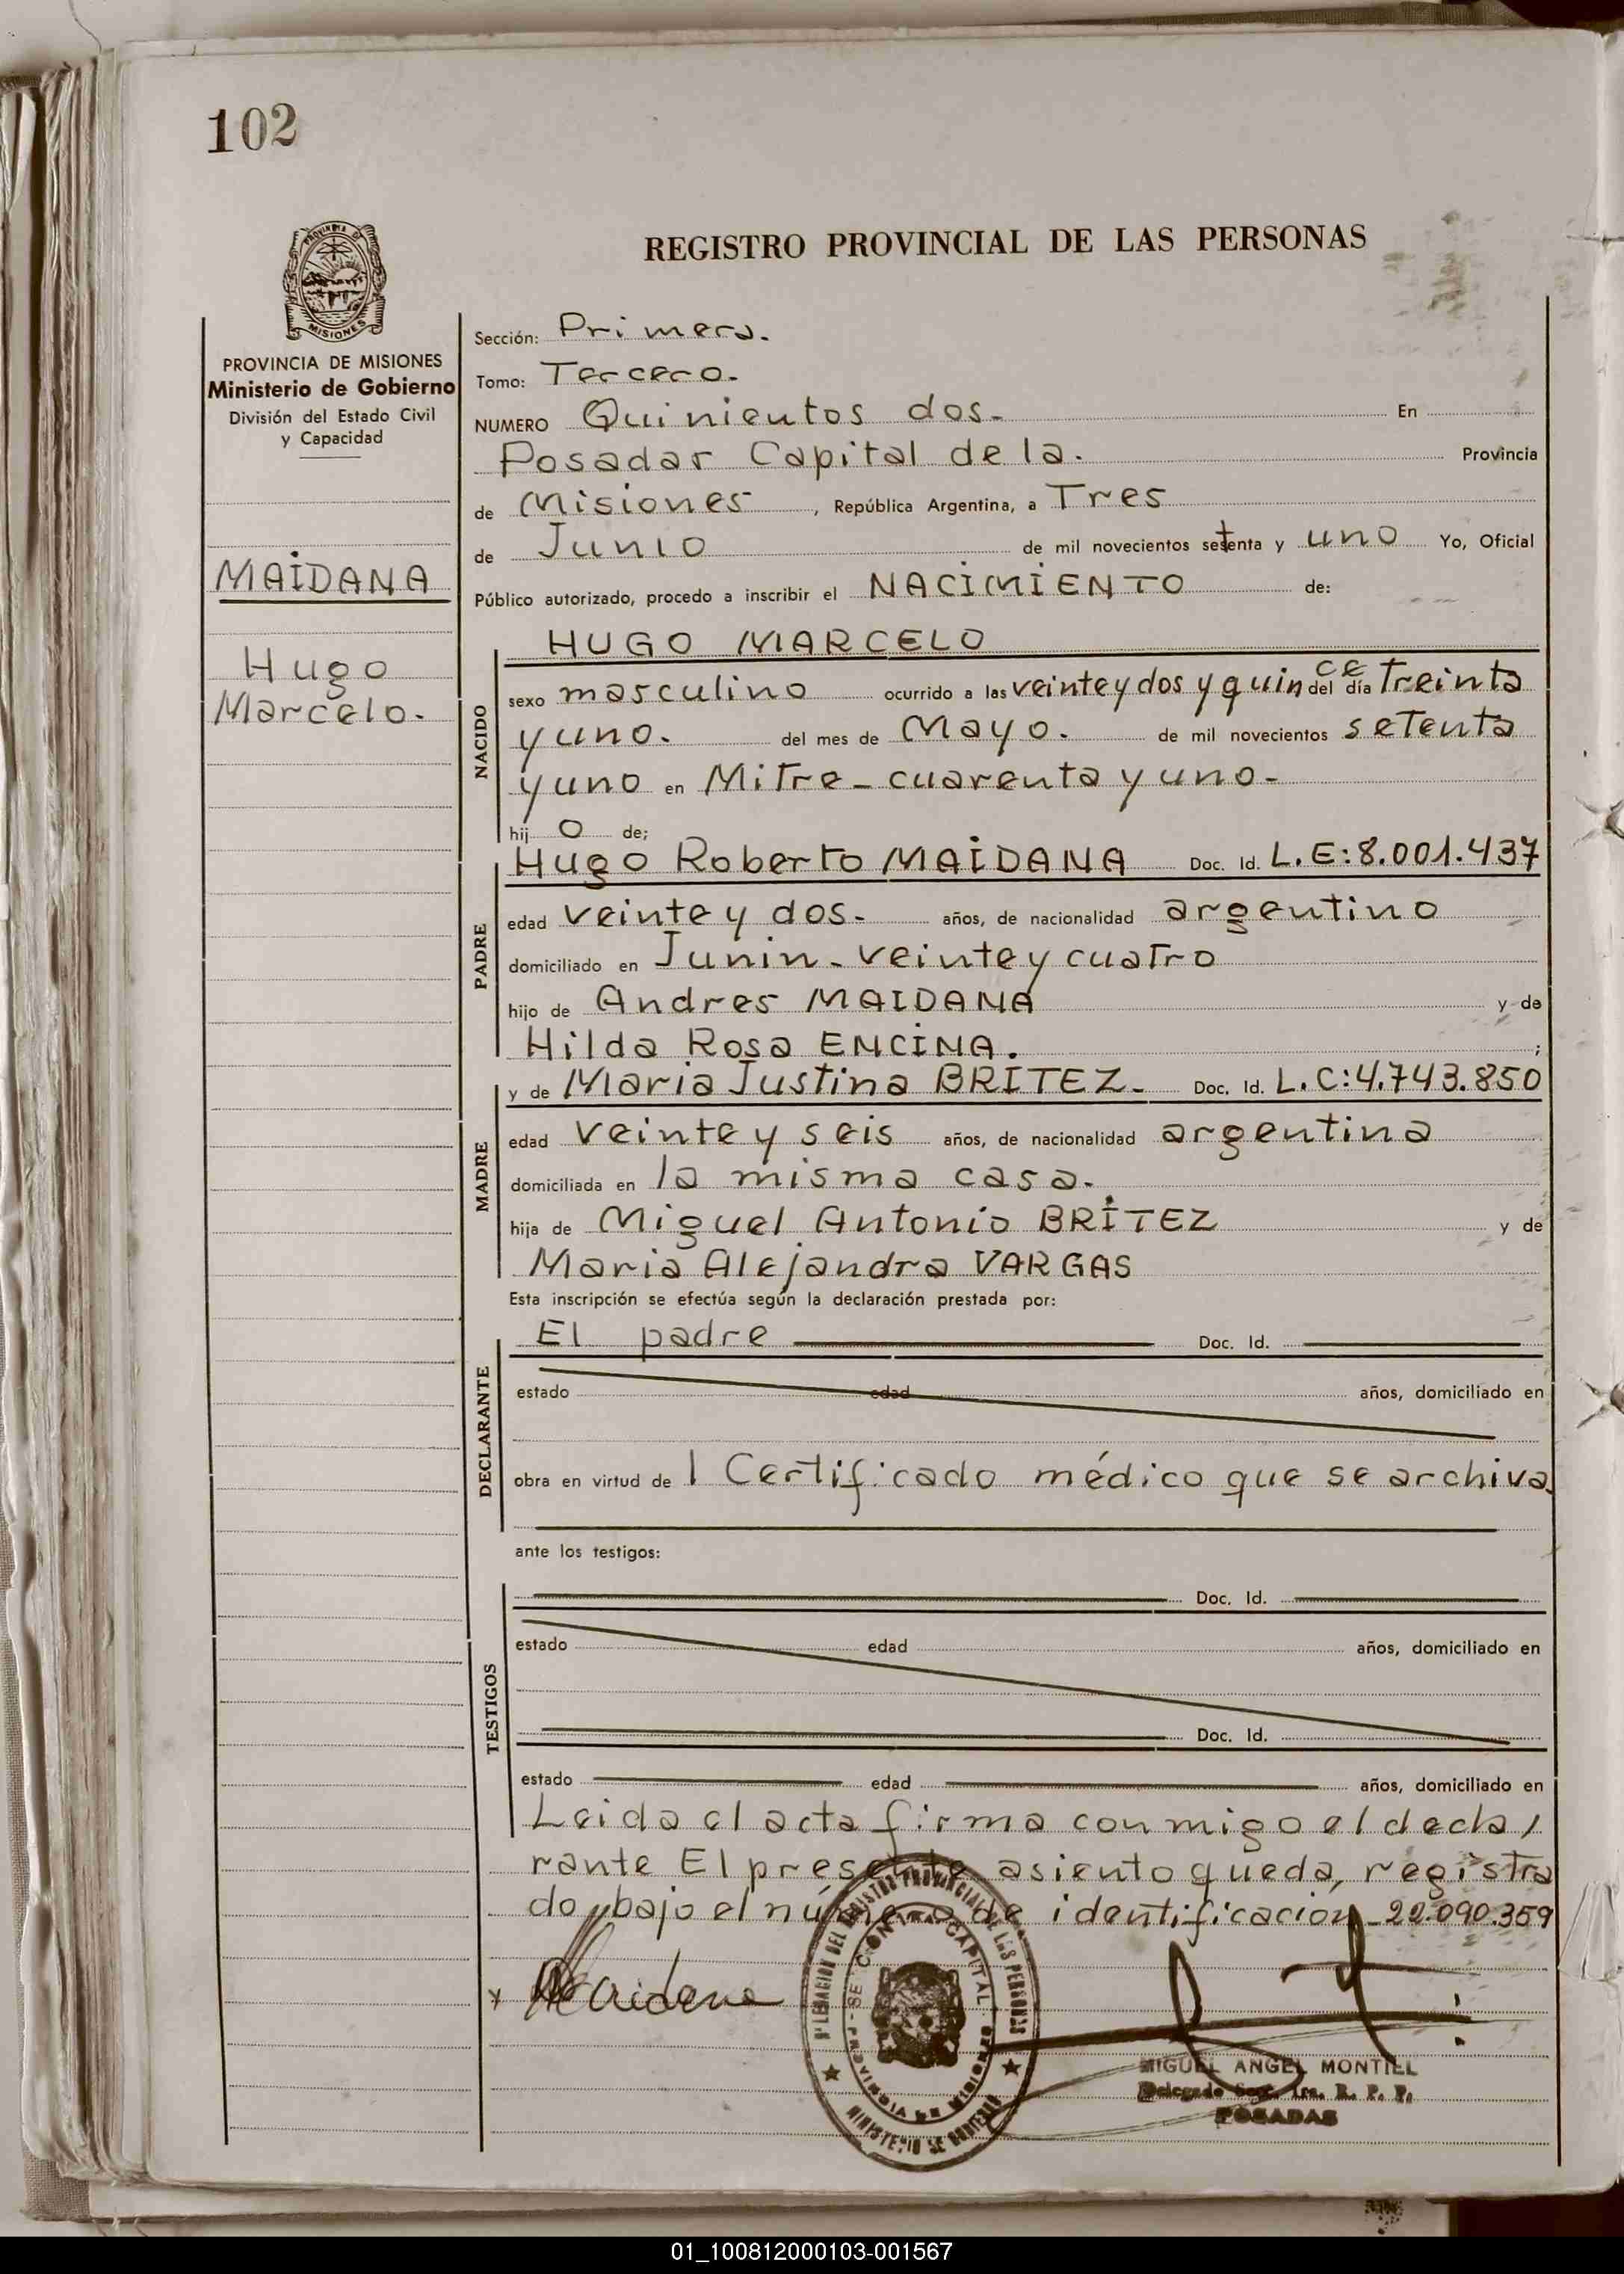 102
PROVINCIA DE
MISIONES
REGISTRO PROVINCIAL DE LAS PERSONAS
PROVINCIA DE MISIONES
Ministerio de Gobierno
División del Estado Civil
y Capacidad
MAIDANA
Hugo
Marcelo.
Sección: Primera.
Tomo: Tercero.
NUMERO Quinientos dos- En
Posadas Capital de la. Provincia
de Misiones, República Argentina, a Tres
de Junio de mil novecientos setenta y uno Yo, Oficial
Público autorizado, procedo a inscribir el NACIMIENTO de:
NACIDO
HUGO MARCELO
sexo masculino ocurrido a las veinte y dos y quince del día Treinta
y uno. del mes de Mayo. de mil novecientos setenta
y uno en Mitre - cuarenta y uno-
hijo de;
PADRE
Hugo Roberto MAIDANA Doc. Id. L.E:8.001.437
edad veinte y dos- años, de nacionalidad argentino
domiciliado en Junin - veinte y cuatro
hijo de Andres MAIDANA y de
Hilda Rosa ENCINA. ;
MADRE
y de Maria Justina BRITEZ- Doc. Id. L.C:4.743.850
edad veinte y seis años, de nacionalidad argentina
domiciliada en la misma casa.
hija de Miguel Antonio BRITEZ y de
Maria Alejandra VARGAS
Esta inscripción se efectúa según la declaración prestada por:
DECLARANTE
El padre Doc. Id.
estado edad años, domiciliado en
obra en virtud de 1 Certificado médico que se archiva.
ante los testigos:
TESTIGOS
Doc. Id.
estado edad años, domiciliado en
Doc. Id.
estado edad años, domiciliado en
Leida el acta firma conmigo el decla/
rante El presente asiento queda, registra
do, bajo el número de identificacion - 22.090.359
Maidana
DELEGACION DEL REGISTRO PROVINCIAL DE LAS PERSONAS
CAPITAL
PROVINCIA DE MISIONES
MINISTERIO DE GOBIERNO
MIGUEL ANGEL MONTIEL
Delegado Secc. 1ra. R. P. P.
POSADAS
01_100812000103-001567